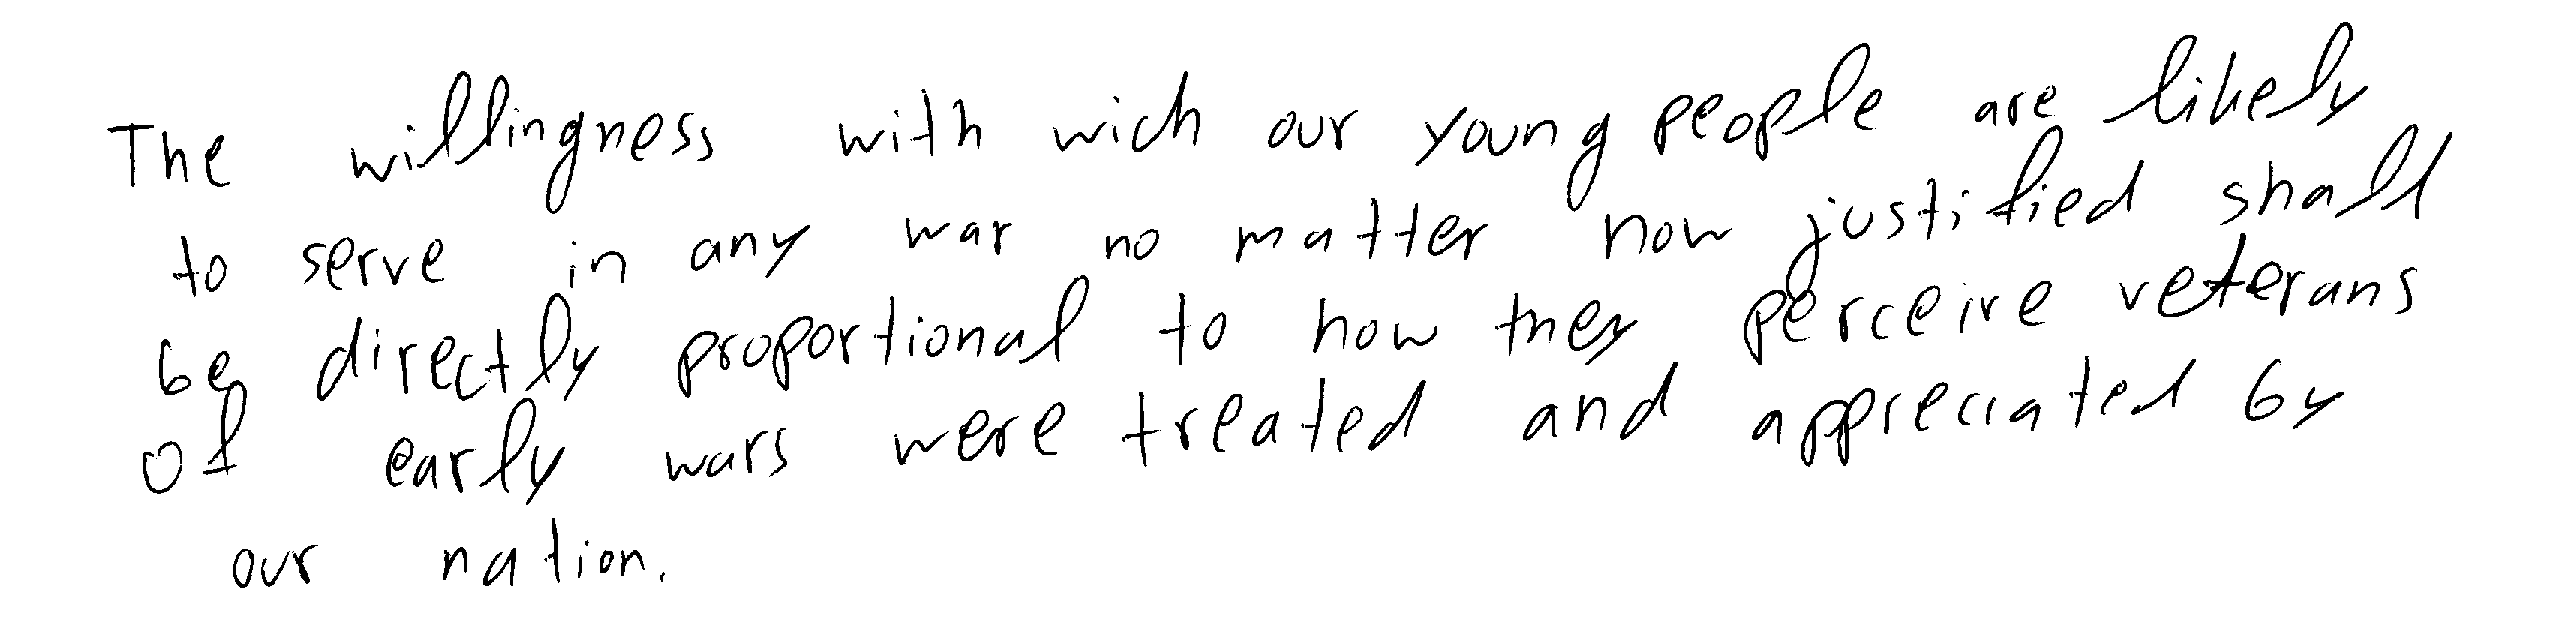 The willingness with wich our young people are likely
to serve in any war no matter how justified shall
be directly proportional to how they perceive veterans
of early wars were treated and appreciated by
our nation.